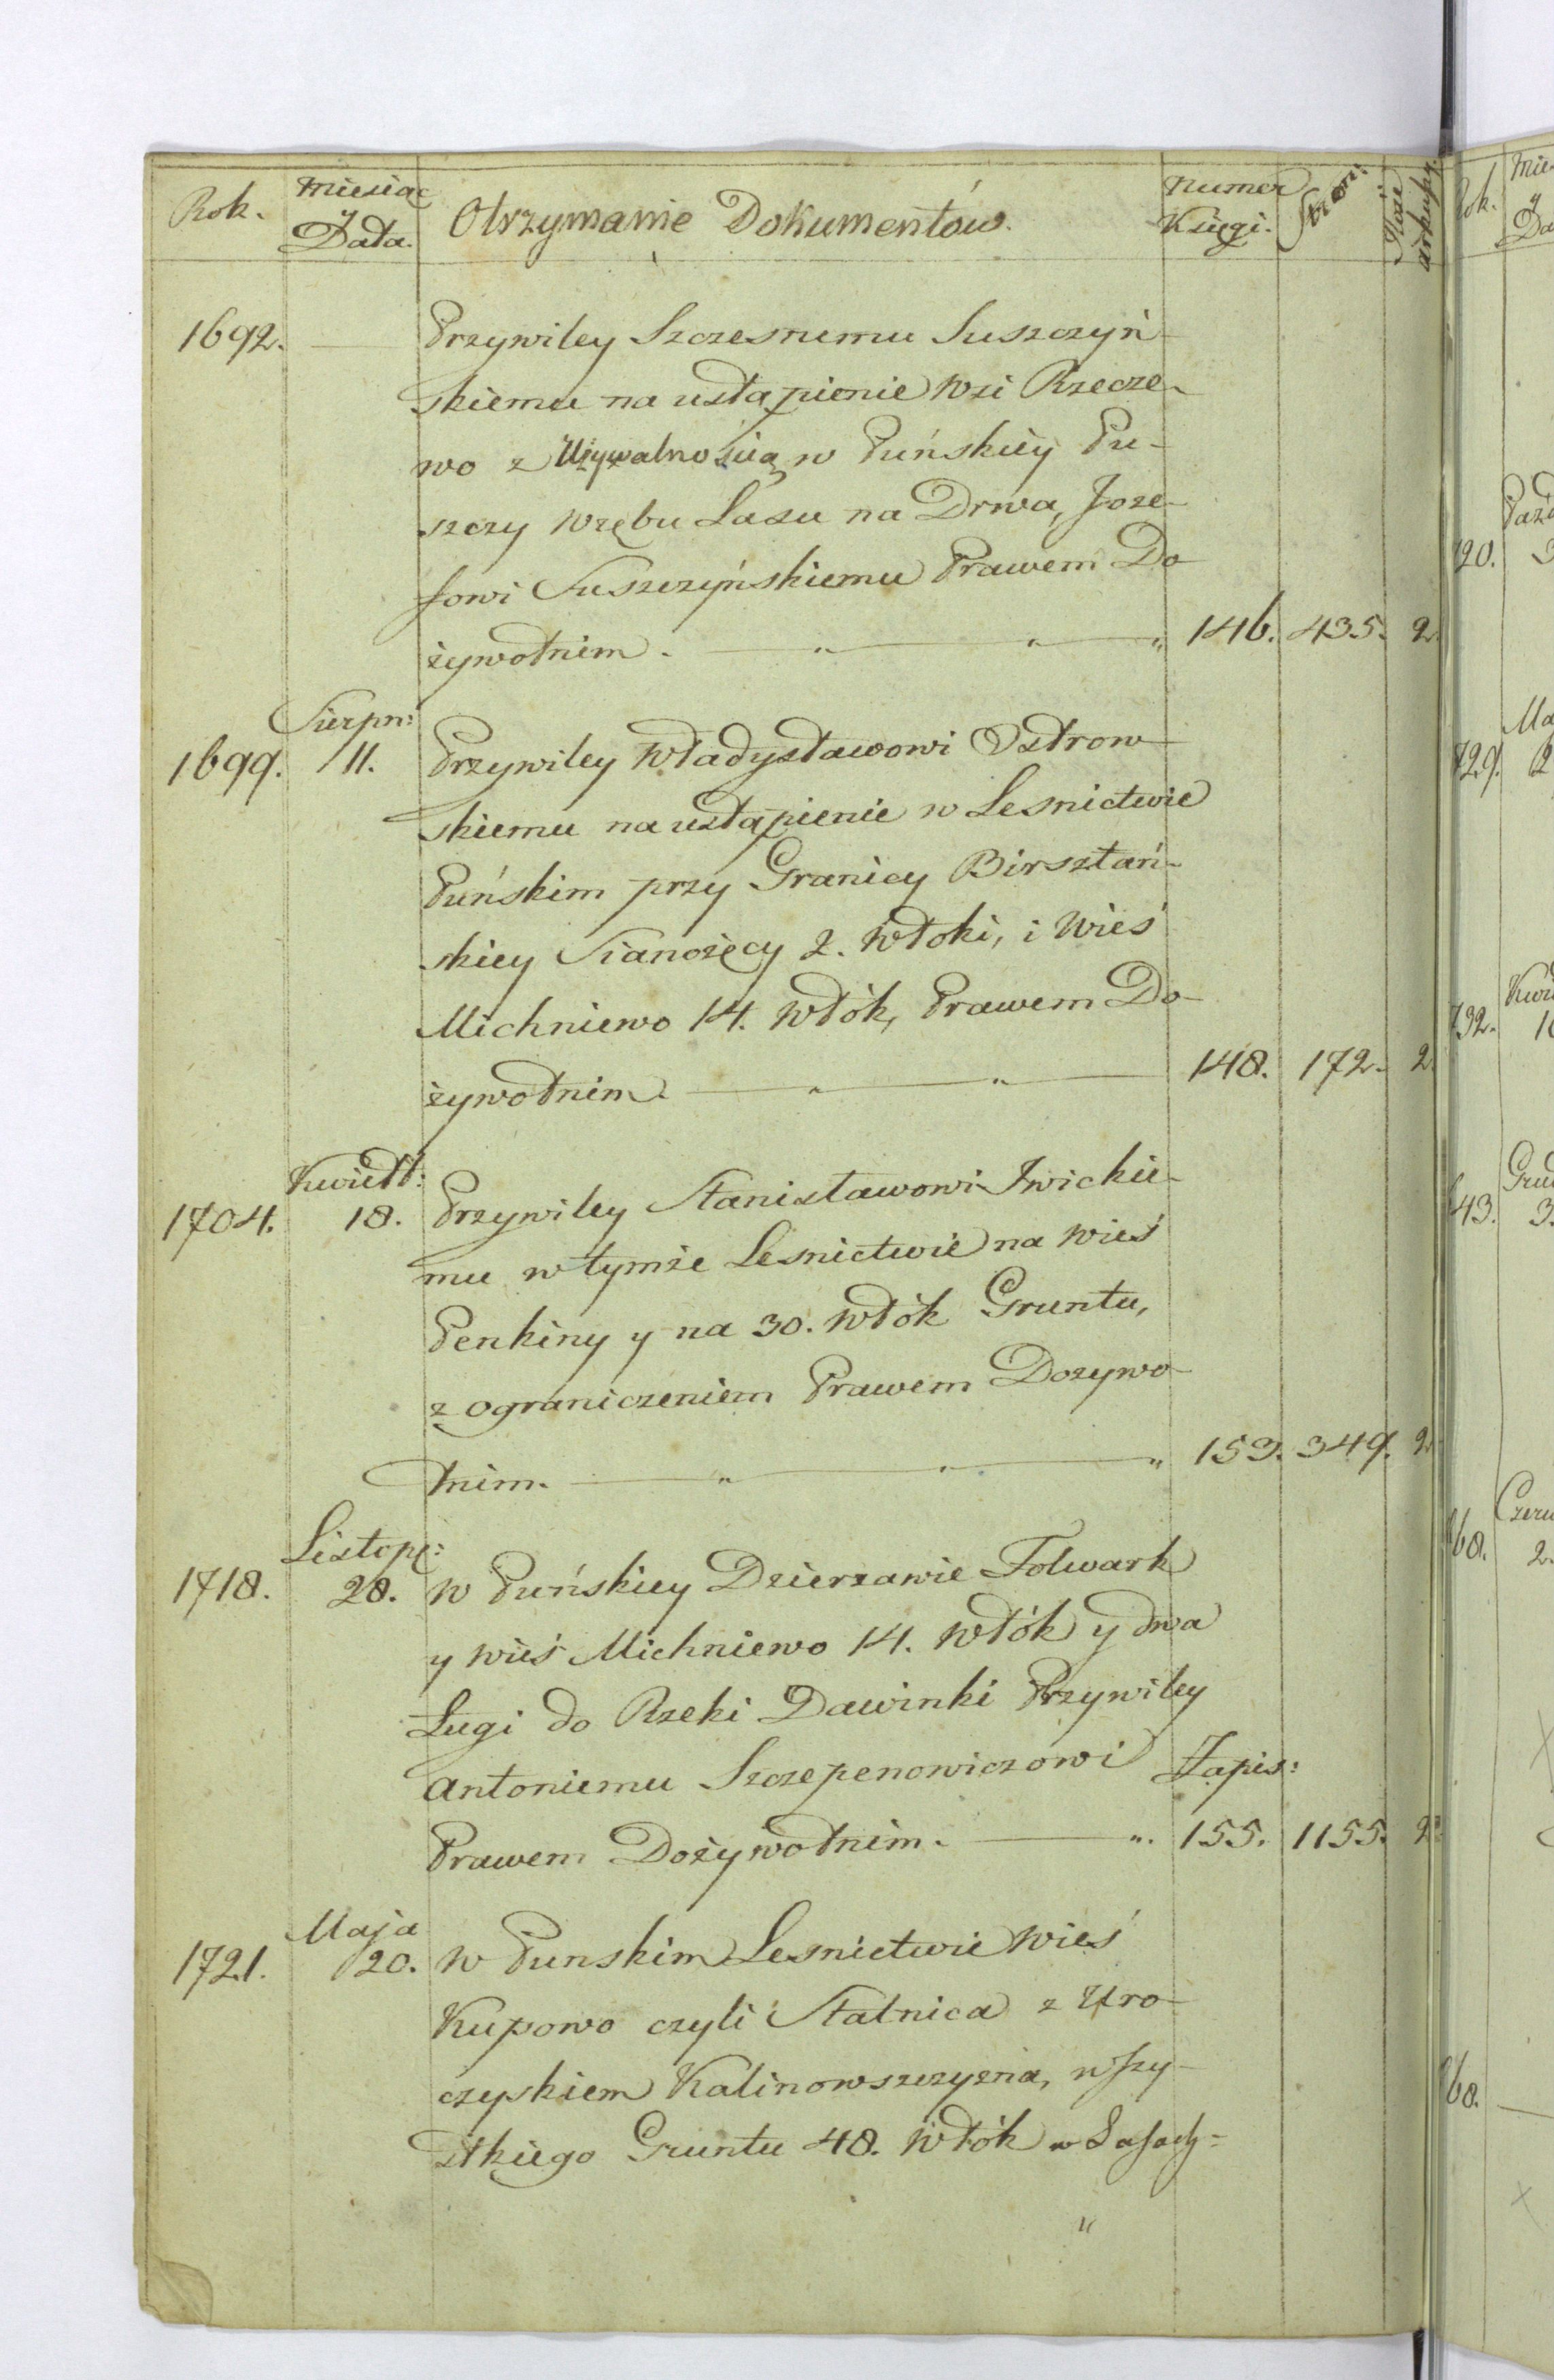 Rok. Miesiąc y Data. Otrzymanie Dokumentów. Numer Księgi. Stron: Ilość arkuszy.
1692. Przywiley Szczesnemu Suszczyń-
skiemu na ustąpienie wsi Rzecze-
wo z Używalnością w Puńskiey Pu-
szczy wrębu Lasu na Drwa, Joze-
fowi Suszczyńskiemu Prawem Do
żywotnim. 146. 435. 2
Sierpn:
1699. 11. Przywiley Władysławowi Ostrow-
skiemu na ustąpienie w Lesnictwie
Puńskim przy Granicy Birsztań-
skiey Sianożęcy 2. Włoki, i Wieś
Michniewo 14. Włók, Prawem Do-
żywotnim. 148. 172. 2
Kwiett:
1704. 18. Przywiley Stanisławowi Iwickie-
mu w tymże Lesnictwie na wieś
Penkiny y na 30. Włók Gruntu,
z ograniczeniem Prawem Dozywo-
tnim. 153. 349. 2
Listop:
1718. 28. W Puńskiey Dzierzawie Folwark
y wieś Michniewo 14. Włók y dwa
Ługi do Rzeki Dawinki Przywiley
Antoniemu Szczepenowiczowi Zapis:
Prawem Dożywotnim. 155. 1155. 2
Maja
1721. 20. W Punskim Lesnictwie Wieś
Kupowo czyli Stalnica z Uro-
czyskiem Kalinowszczyzna, wszy-
stkiego Gruntu 48. Włók w Lasach